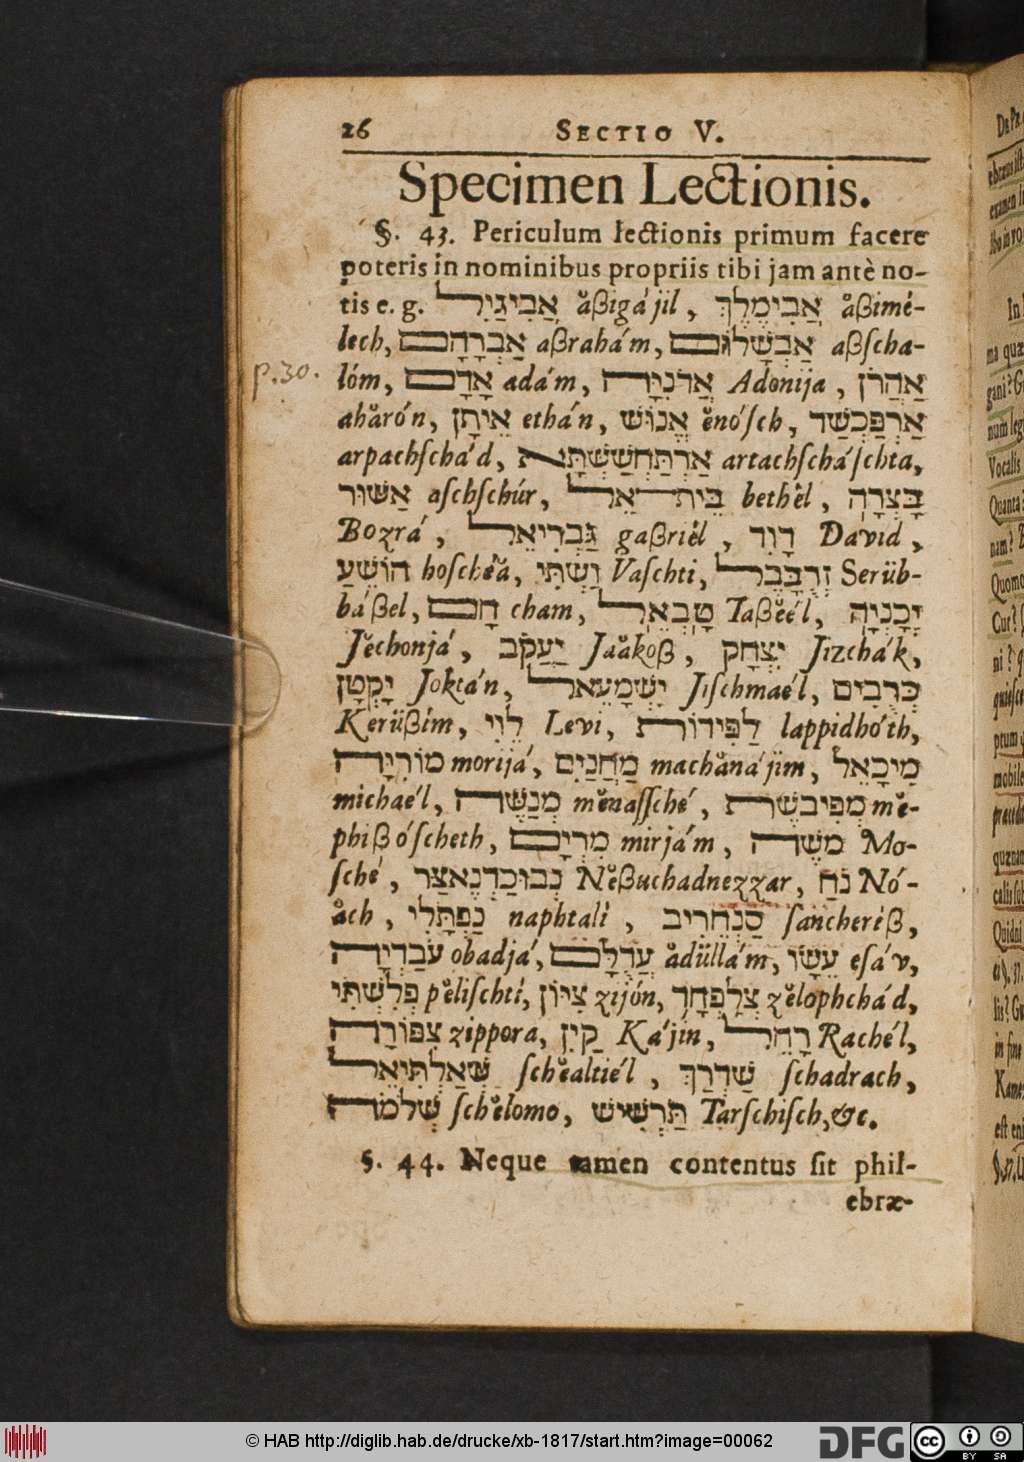 26 SECTIO V.
Specimen Lectionis.
§. 43. Periculum lectionis primum facere
poteris in nominibus propriis tibi jam antè no-
tis e. g. אֲבִיגַיִל åßigájil, אֲבִימֶלֶךְ åßimé-
lech, אַבְרָהָם aßrahám, אַבְשָׁלוֹם aßscha-
p.30.
lóm, אָדָם adám, אֲדֹנִיָּה Adonija, אַהֲרֹן
aharón, אֵיתָן ethán, אֱנוֹשׁ enósch, אַרְפַּכְשַׁד
arpachschád, אַרְתַּחְשַׁשְׁתָּא artachscháschta,
אַשּׁוּר aschschúr, בֵּית־אֵל bethêl, בָּצְרָה
Bozrá, גַּבְרִיאֵל gaßriêl, דָּוִד David,
הוֹשֵׁעַ hoschêa, וַשְׁתִּי Vaschti, זְרֻבָּבֶל Serüb-
báßel, חָם cham, טָבְאֵל Taßeél, יְכָנְיָה
Jechonjá, יַעֲקֹב Jaåkoß, יִצְחָק Jizchák,
יָקְטָן Joktán, יִשְׁמָעֵאל Jischmaél, כְּרֻבִים
Kerüßím, לֵוִי Levi, לַפִּידוֹת lappidhóth,
מוֹרִיָּה morijá, מַחֲנַיִם machånájim, מִיכָאֵל
michaél, מְנַשֶּׁה menassché, מְפִיבֹשֶׁת me-
phißóscheth, מִרְיָם mirjám, מֹשֶׁה Mo-
sché, נְבוּכַדְנֶאצַּר Neßuchadnezzar, נֹחַ Nó-
åch, נַפְתָּלִי naphtalì, סַנְחֵרִיב sancheriß,
עֹבַדְיָה obadjá, עֲדֻלָּם ådüllám, עֵשָׂו esáv,
פְּלִשְׁתִּי pelischtí, צִיּוֹן zijón, צְלָפְחָד zelophchád,
צִפּוֹרָה zippora, קַיִן Kájin, רָחֵל Rachél,
שְׁאַלְתִּיאֵל schealtiél, שַׁדְרַךְ schadrach,
שְׁלֹמֹה schelomo, תַּרְשִׁישׁ Tarschisch, &c.
§. 44. Neque tamen contentus sit phil-
ebræ-
© HAB http://diglib.hab.de/drucke/xb-1817/start.htm?image=00062
DFG
cc BY SA